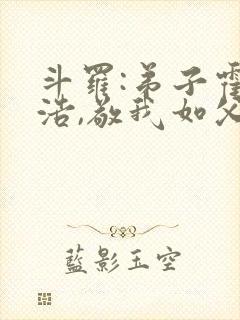 斗羅:弟子霍
浩,敬我如父
藍影玉空